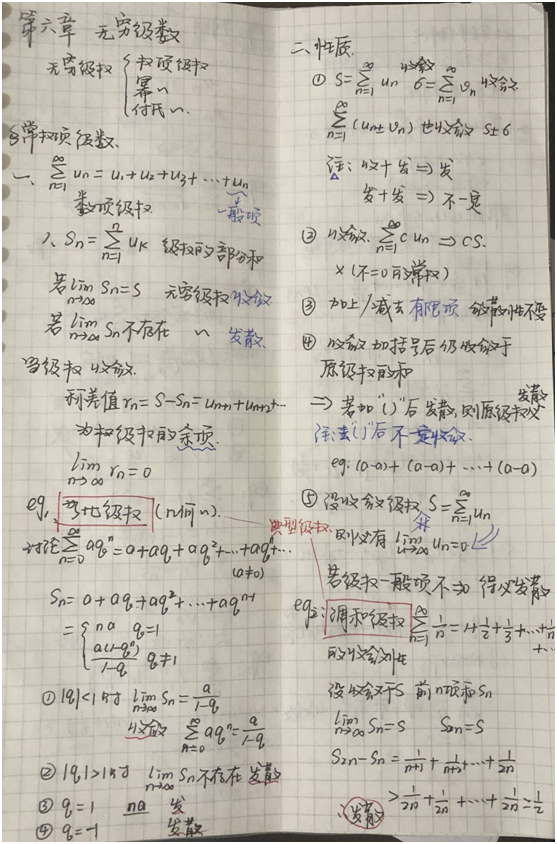 第六章 无穷级数
无穷级数 { 数项级数
幂〃
付氏〃.
§常数项级数.
一、∑_{n=1}^{∞} uₙ = u₁+u₂+u₃+⋯+uₙ
数项级数. 一般项
1、Sₙ = ∑_{n=1}^{n} uₖ 级数的部分和
若 lim_{n→∞} Sₙ=S 无穷级数收敛
若 lim_{n→∞} Sₙ不存在 〃 发散.
当级数收敛.
则差值 rₙ = S−Sₙ = uₙ₊₁+uₙ₊₂+⋯
为级数的余项.
lim_{n→∞} rₙ = 0
eg₁ 等比级数 (几何〃). 典型级数.
讨论∑_{n=0}^{∞} aqⁿ = a+aq+aq²+⋯+aqⁿ+⋯
(a≠0)
Sₙ = a+aq+aq²+⋯+aqⁿ⁻¹
= { na q=1
a(1-qⁿ)/(1-q) q≠1
① |q|<1时 lim_{n→∞} Sₙ = a/(1-q)
收敛 ∑_{n=0}^{∞} aqⁿ = a/(1-q)
② |q|>1时 lim_{n→∞} Sₙ不存在 发散
③ q=1 na 发
④ q=-1 发散
二、性质.
① S=∑_{n=1}^{∞} uₙ 收敛 6=∑_{n=1}^{∞} vₙ 收敛
∑_{n=1}^{∞} (uₙ±vₙ) 也收敛 S±6
注: 收+发 ⇒ 发
发+发 ⇒ 不一定
② 收敛. ∑_{n=1}^{∞} c uₙ ⇒ CS.
×(不=0的常数)
③ 加上/减去 有限项 敛散性不变
④ 收敛加括号后仍收敛于
原级数的和
⇒ 若加“( )”后发散, 则原级数必发散
注: 去“( )”后 不一定收敛.
eg: (a-a)+(a-a)+⋯+(a-a)
⑤ 设收敛级数 S=∑_{n=1}^{∞} uₙ
则必有 lim_{n→∞} uₙ=0
若级数一般项不→0 级必发散
eg₂: 调和级数 ∑_{n=1}^{∞} 1/n = 1+1/2+1/3+⋯+1/n
+⋯
的收敛性
设收敛于S 前n项和Sₙ
lim_{n→∞} Sₙ=S S₂ₙ=S
S₂ₙ−Sₙ = 1/(n+1)+1/(n+2)+⋯+1/2n
> 1/2n+1/2n+⋯+1/2n = 1/2
∴发散